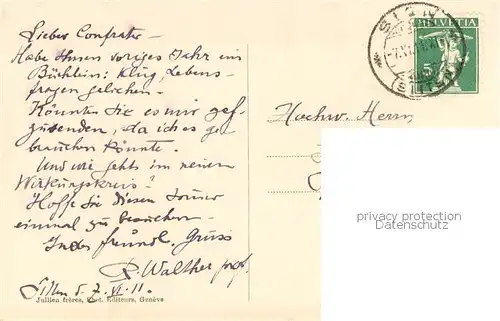 Lieber Confrater –
Habe Ihnen voriges Jahr ein
Büchlein: Klug, Lebens-
fragen geliehen.
Könnten Sie es mir gef.
zusenden, da ich es ge
brauchen könnte.
Und wie gehts im neuen
Wirkungskreis?
Hoffe Sie diesen Sommer
einmal zu besuchen –
Indes freundl. Gruss
P. Walther prof.
Sitten d. 7. VI. 11.
Jullien frères, Phot. Editeurs, Genève
HELVETIA
5
Hochw. Herrn
privacy protection
Datenschutz